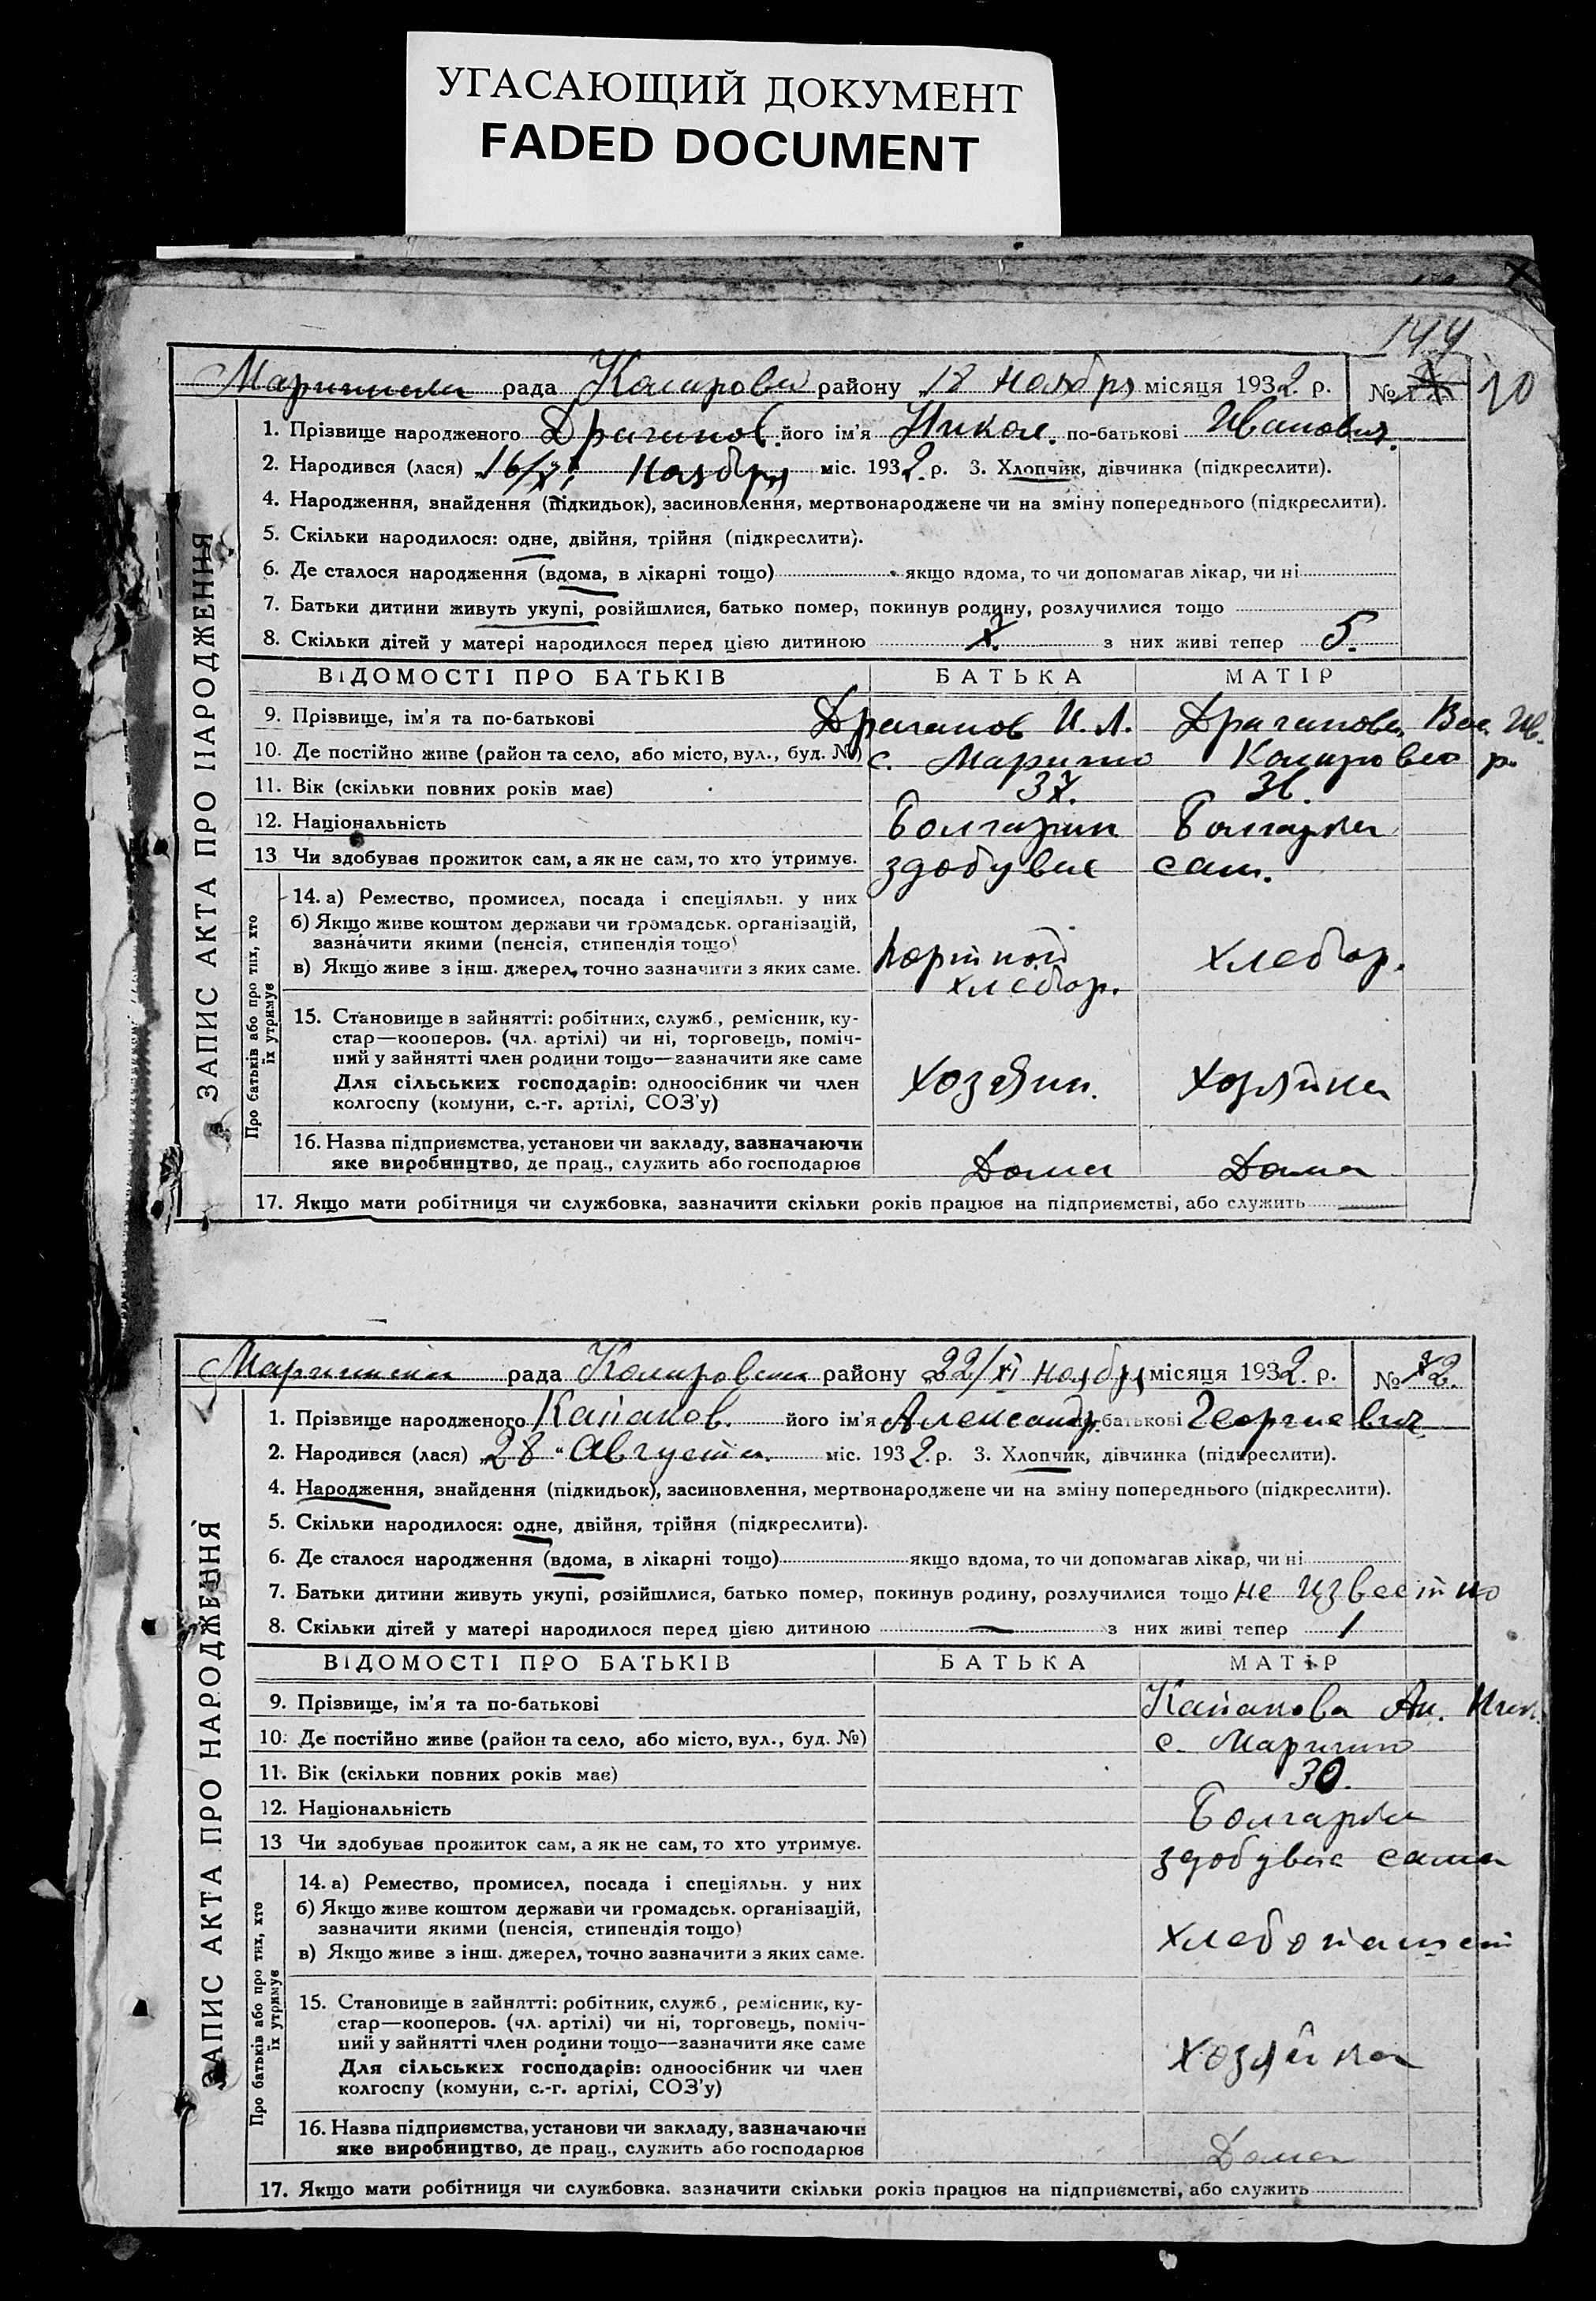 УГАСАЮЩИЙ ДОКУМЕНТ
FADED DOCUMENT
144
рада району 18 ноября місяця 1932 р. № 70
1. Прізвище народженого Драганов. його ім'я Никол. по-батькові Иванович.
2. Народився (лася) 16/XI Ноября міс. 1932 р. 3. Хлопчик, дівчинка (підкреслити).
4. Народження, знайдення (підкидьок), засиновлення, мертвонароджене чи на зміну попереднього (підкреслити).
5. Скільки народилося: одне, двійня, трійня (підкреслити).
6. Де сталося народження (вдома, в лікарні тощо) якщо вдома, то чи допомагав лікар, чи ні
7. Батьки дитини живуть укупі, розійшлися, батько помер, покинув родину, розлучилися тощо
8. Скільки дітей у матері народилося перед цією дитиною з них живі тепер 5.
ЗАПИС АКТА ПРО НАРОДЖЕННЯ
ВІДОМОСТІ ПРО БАТЬКІВ БАТЬКА МАТІР
9. Прізвище, ім'я та по-батькові Драганов И. Л. Драганова Вас. Ив.
10. Де постійно живе (район та село, або місто, вул., буд. №) с. р.
11. Вік (скільки повних років має) 37.
12. Національність Болгарин Болгарка
13 Чи здобував прожиток сам, а як не сам, то хто утримує. здобувае сам.
Про батьків або про тих, хто їх утримує
14. а) Ремество, промисел, посада і спеціяльн. у них
б) Якщо живе коштом держави чи громадськ. організацій,
зазначити якими (пенсія, стипендія тощо)
в) Якщо живе з інш. джерел, точно зазначити з яких саме. портной хлебор. хлебор.
15. Становище в зайнятті: робітник, служб., ремісник, ку-
стар—кооперов. (чл. артілі) чи ні, торговець, поміч-
ний у зайнятті член родини тощо—зазначити яке саме
Для сільських господарів: одноосібник чи член хозяин. хозяйка
колгоспу (комуни, с.-г. артілі, СОЗ'у)
16. Назва підприємства, установи чи закладу, зазначаючи
яке виробництво, де прац., служить або господарює Дома Дома
17. Якщо мати робітниця чи службовка, зазначити скільки років працює на підприємстві, або служить
рада району 22/XI ноября місяця 1932 р. № 72.
1. Прізвище народженого Капанов. його ім'я Александр. по-батькові Георгиевич
2. Народився (лася) „28“ Августа. міс. 1932 р. 3. Хлопчик, дівчинка (підкреслити).
4. Народження, знайдення (підкидьок), засиновлення, мертвонароджене чи на зміну попереднього (підкреслити).
5. Скільки народилося: одне, двійня, трійня (підкреслити).
6. Де сталося народження (вдома, в лікарні тощо) якщо вдома, то чи допомагав лікар, чи ні
7. Батьки дитини живуть укупі, розійшлися, батько помер, покинув родину, розлучилися тощо не известно
8. Скільки дітей у матері народилося перед цією дитиною — з них живі тепер 1
ЗАПИС АКТА ПРО НАРОДЖЕННЯ
ВІДОМОСТІ ПРО БАТЬКІВ БАТЬКА МАТІР
9. Прізвище, ім'я та по-батькові Капанова Ан. Ник.
10. Де постійно живе (район та село, або місто, вул., буд. №) с.
11. Вік (скільки повних років має) 30.
12. Національність Болгарка
13 Чи здобував прожиток сам, а як не сам, то хто утримує. здобувае сама
Про батьків або про тих, хто їх утримує
14. а) Ремество, промисел, посада і спеціяльн. у них
б) Якщо живе коштом держави чи громадськ. організацій,
зазначити якими (пенсія, стипендія тощо)
в) Якщо живе з інш. джерел, точно зазначити з яких саме. хлебопашест
15. Становище в зайнятті: робітник, служб., ремісник, ку-
стар—кооперов. (чл. артілі) чи ні, торговець, поміч-
ний у зайнятті член родини тощо—зазначити яке саме
Для сільських господарів: одноосібник чи член хозяйка
колгоспу (комуни, с.-г. артілі, СОЗ'у)
16. Назва підприємства, установи чи закладу, зазначаючи
яке виробництво, де прац., служить або господарює Дома
17. Якщо мати робітниця чи службовка. зазначити скільки років працює на підприємстві, або служить